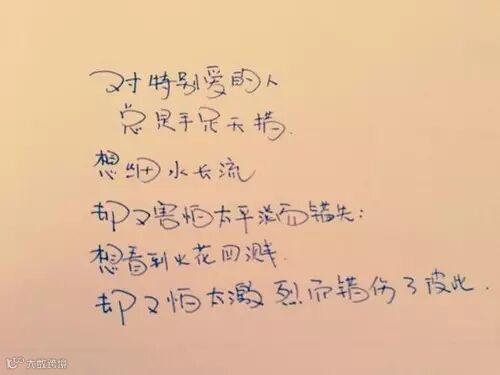 对特别爱的人
总是手足无措.
想细水长流
却又害怕太平淡而错失;
想看到火花四溅.
却又怕太激烈而错伤了彼此.
大数跨境